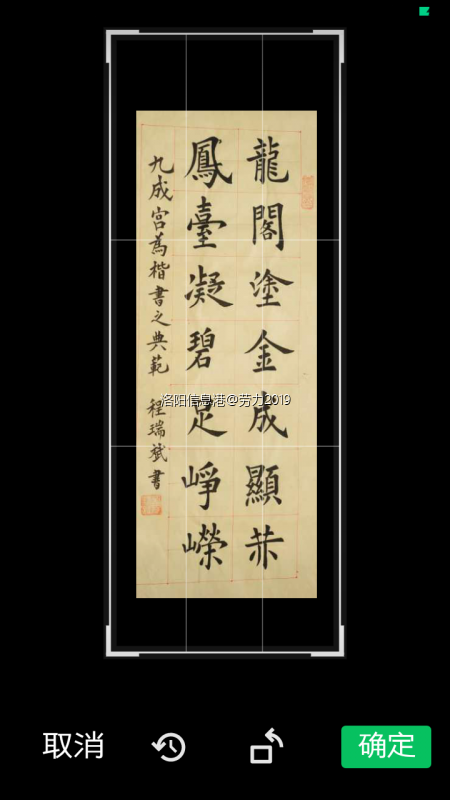 龍閣塗金成顯
鳳臺凝碧足崢嶸
九成宫為楷書之典範 程瑞斌書
洛阳信息港@劳力2019
取消
确定